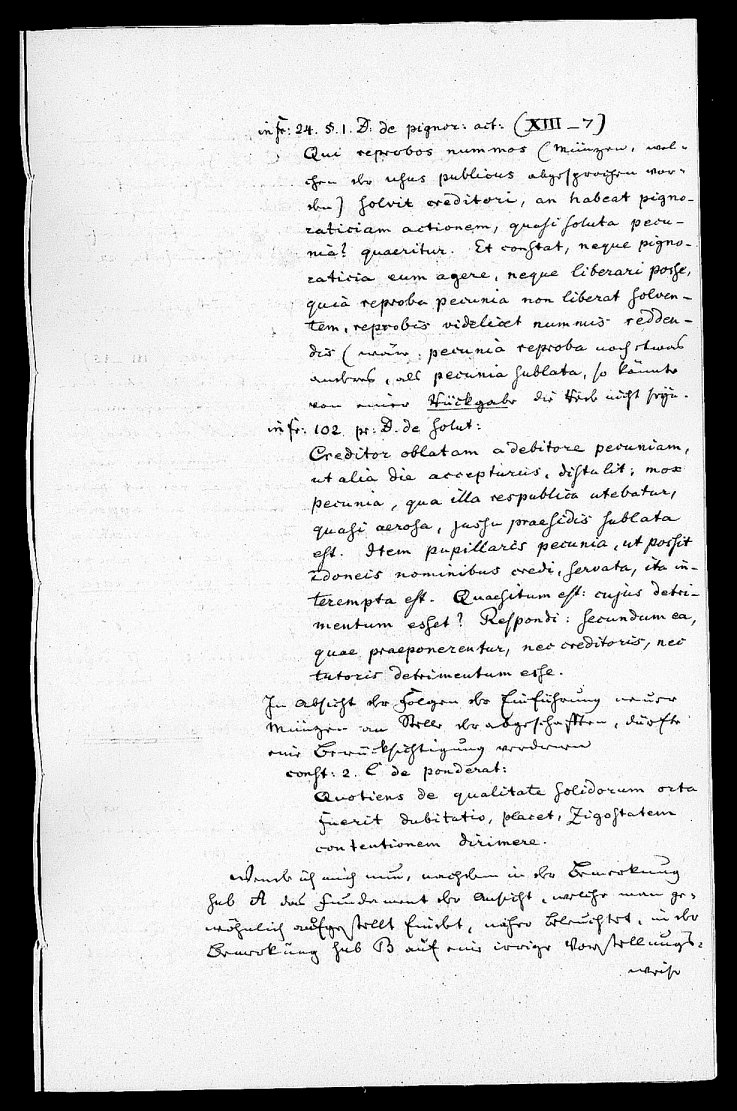 in fr: 24. §. 1. D. de pignor: act: (XIII_7)
Qui reprobos nummos (Münzen, wel-
chen der usus publicus abgesprochen wor-
den) solvit creditori, an habeat pigno-
raticiam actionem, quasi soluta pecu-
niâ? quaeritur. Et constat, neque pigno-
raticia eum agere, neque liberari posse,
quia reproba pecunia non liberat solven-
tem, reprobis videlicet nummis redden-
dis (wäre pecunia reproba noch etwas
anderes, als pecunia sublata, so könnte
von einer Rückgabe die Rede nicht seyn.
in fr: 102. pr: D. de solut:
Creditor oblatam a debitore pecuniam,
ut alia die accepturus, distulit; mox
pecunia, qua illa respublica utebatur,
quasi aerosa, jussu praesidis sublata
est. Item pupillaris pecunia, ut possit
idoneis nominibus credi, servata, ita in-
terempta est. Quaesitum est: cujus detri-
mentum esset? Respondi: secundum ea,
quae praeponerentur, nec creditoris, nec
tutoris detrimentum esse.
In Absicht der Folgen der Einführung neuer
Münzen an Stelle der abgeschafften, dürfte
eine Berücksichtigung verdienen
const: 2. C de ponderat:
Quotiens de qualitate solidorum orta
fuerit dubitatio, placet, Zigostatem
contentionem dirimere.
Wende ich mich nun, nachdem in der Bemerkung
sub A das Fundament der Ansicht, welche man ge-
wöhnlich aufgestellt findet, näher beleuchtet, in der
Bemerkung sub B auf eine irrige Vorstellungs-
weise